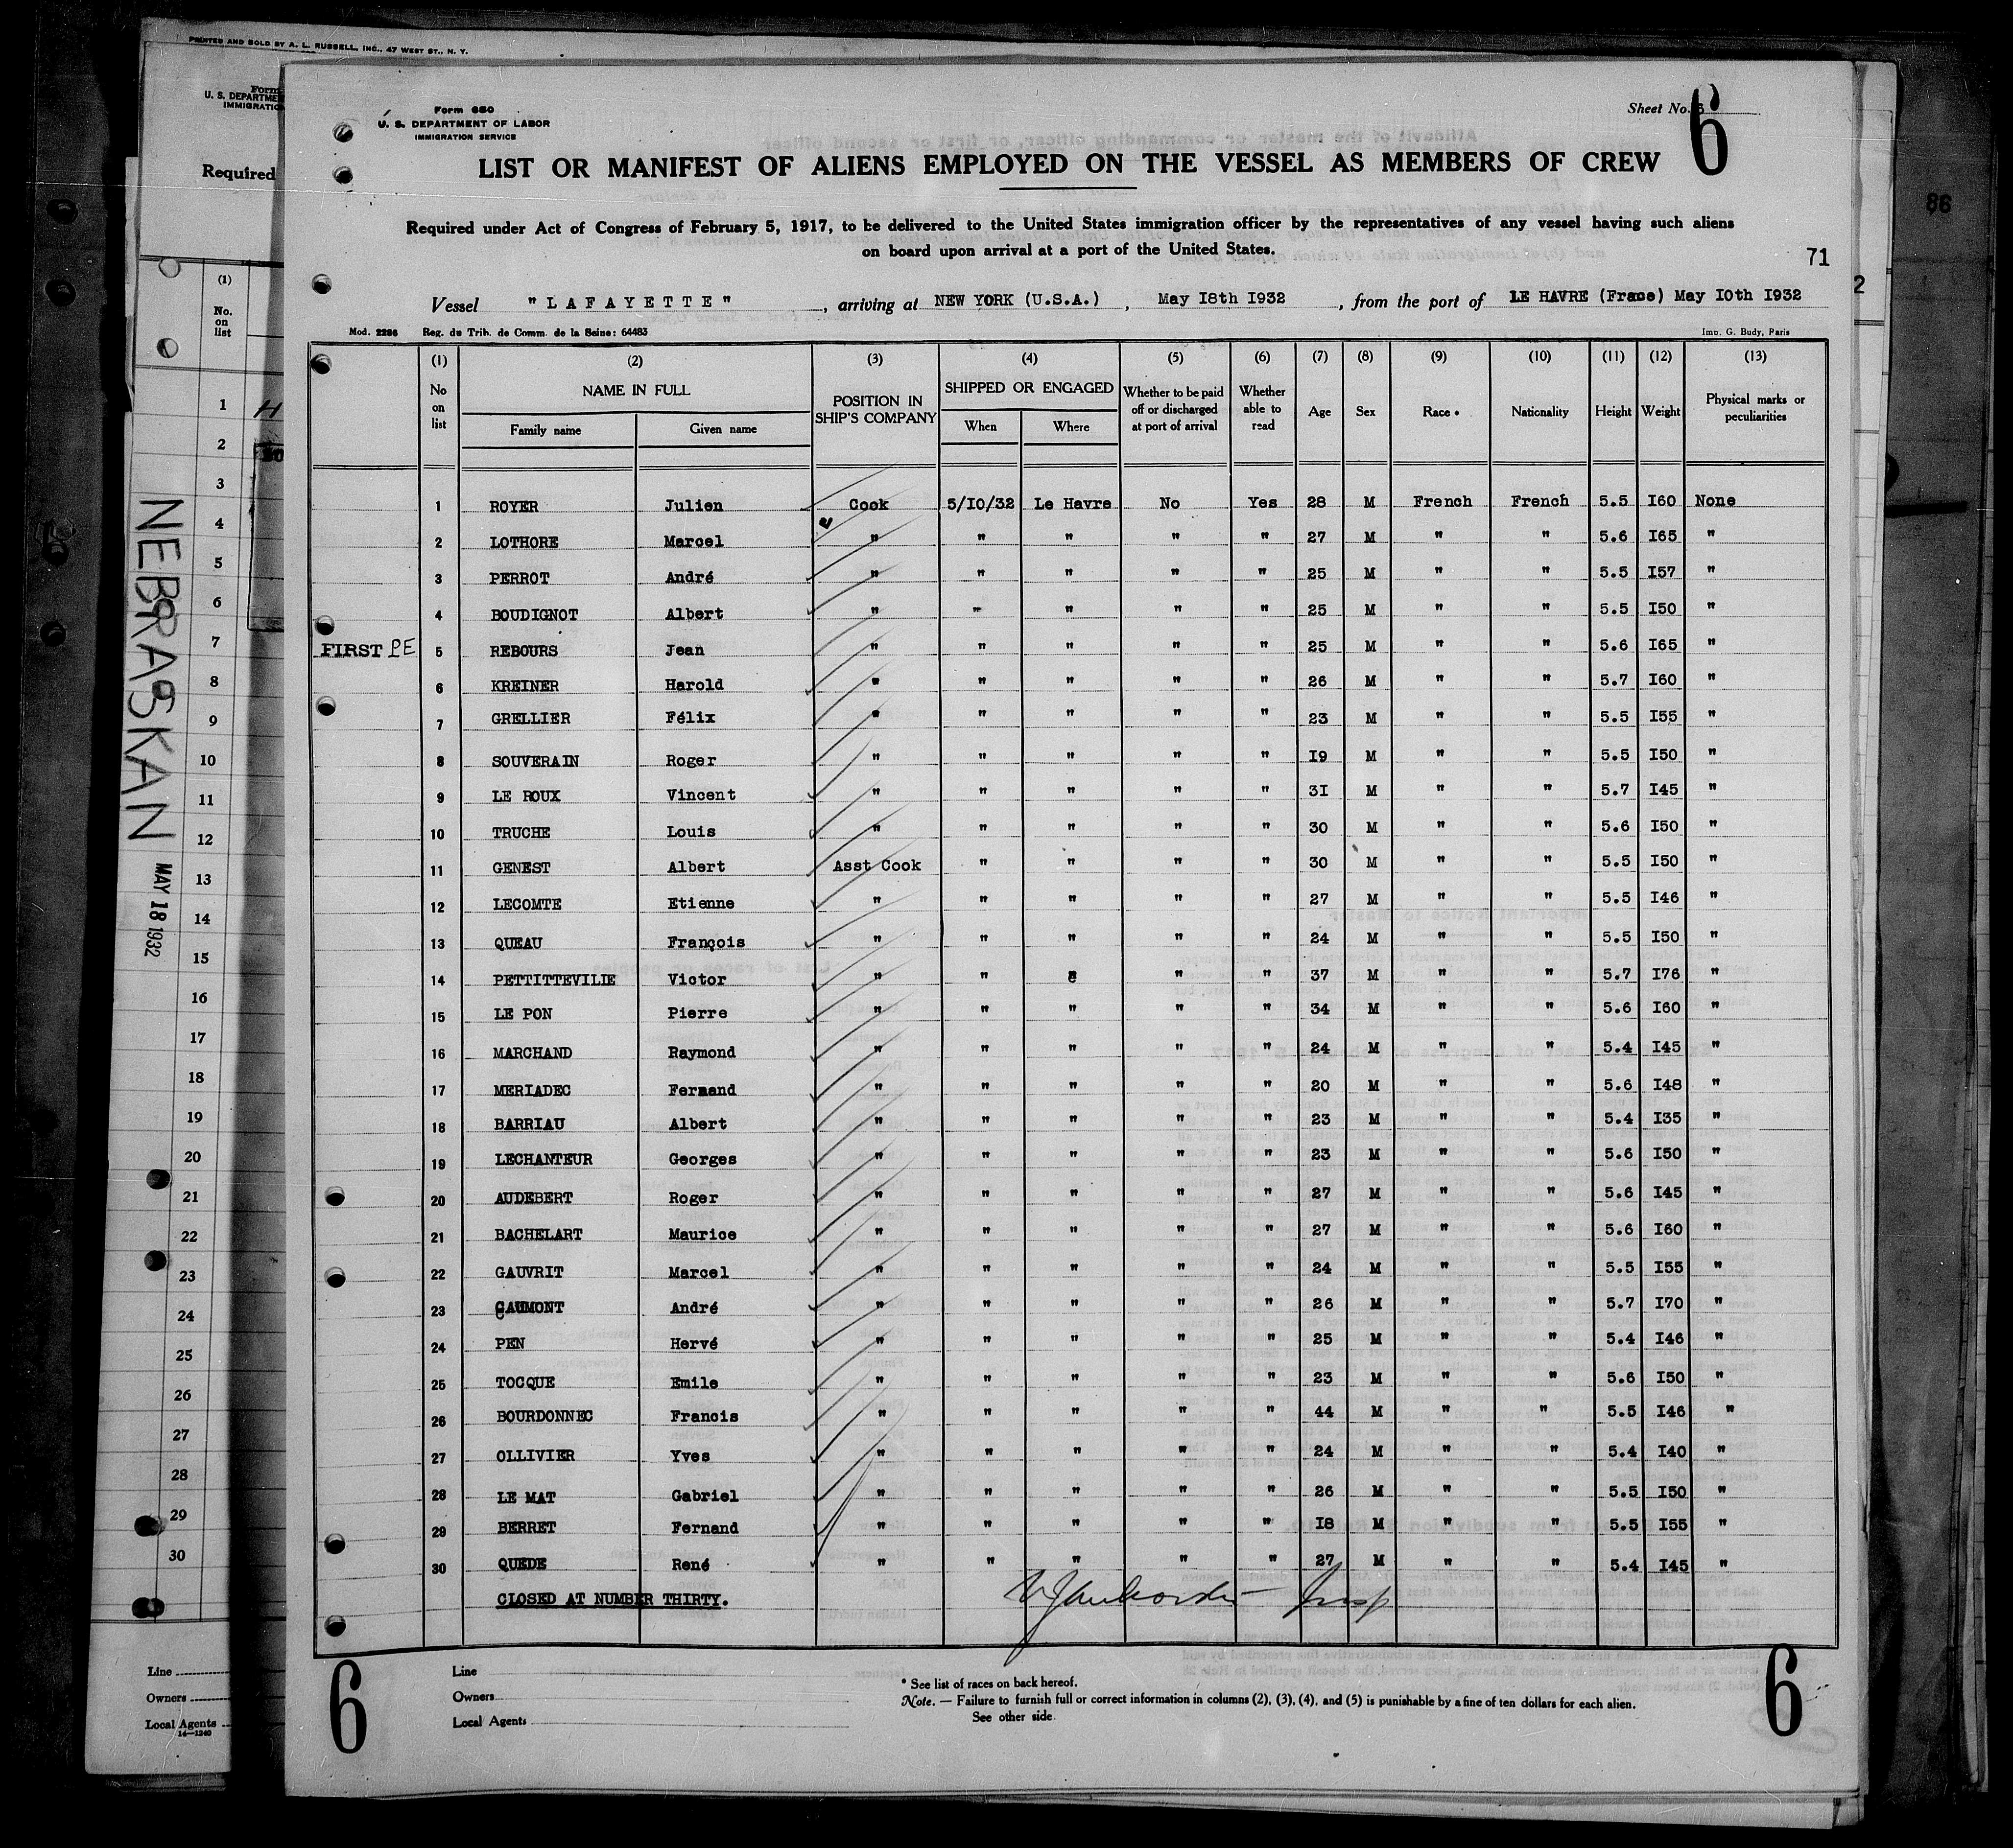 PRINTED AND SOLD BY A. L. RUSSELL, INC., 47 WEST ST., N. Y.
Form
U. S. DEPARTME
IMMIGRATIO
Required
(1)
No. on list
1 H
2
3
4
5
6
7
8
9
10
11
12
13
14
15
16
17
18
19
20
21
22
23
24
25
26
27
28
29
30
NEBRASKAN
MAY 18 1932
Line
Owners
Local Agents
14—1240
86
2
Form 680
U. S. DEPARTMENT OF LABOR
IMMIGRATION SERVICE
Sheet No. 6
6
LIST OR MANIFEST OF ALIENS EMPLOYED ON THE VESSEL AS MEMBERS OF CREW
Required under Act of Congress of February 5, 1917, to be delivered to the United States immigration officer by the representatives of any vessel having such aliens
on board upon arrival at a port of the United States.
71
Vessel "LAFAYETTE", arriving at NEW YORK (U.S.A.), May I8th I932, from the port of LE HAVRE (Frace) May I0th I932
Mod. 2286 Reg. du Trib. de Comm. de la Seine: 64483 Imp. G. Budy, Paris
(1) (2) (3) (4) (5) (6) (7) (8) (9) (10) (11) (12) (13)
No on list NAME IN FULL POSITION IN SHIP'S COMPANY SHIPPED OR ENGAGED Whether to be paid off or discharged at port of arrival Whether able to read Age Sex Race * Nationality Height Weight Physical marks or peculiarities
Family name Given name When Where
1 ROYER Julien Cook 5/I0/32 Le Havre No Yes 28 M French French 5.5 I60 None
2 LOTHORE Marcel " " " " " 27 M " " 5.6 I65 "
3 PERROT André " " " " " 25 M " " 5.5 I57 "
4 BOUDIGNOT Albert " " " " " 25 M " " 5.5 I50 "
FIRST PE 5 REBOURS Jean " " " " " 25 M " " 5.6 I65 "
6 KREINER Harold " " " " " 26 M " " 5.7 I60 "
7 GRELLIER Félix " " " " " 23 M " " 5.5 I55 "
8 SOUVERAIN Roger " " " " " I9 M " " 5.5 I50 "
9 LE ROUX Vincent " " " " " 3I M " " 5.7 I45 "
10 TRUCHE Louis " " " " " 30 M " " 5.6 I50 "
11 GENEST Albert Asst Cook " " " " 30 M " " 5.5 I50 "
12 LECOMTE Etienne " " " " " 27 M " " 5.5 I46 "
13 QUEAU François " " " " " 24 M " " 5.5 I50 "
14 PETTITTEVILIE Victor " " " " " 37 M " " 5.7 I76 "
15 LE PON Pierre " " " " " 34 M " " 5.6 I60 "
16 MARCHAND Raymond " " " " " 24 M " " 5.4 I45 "
17 MERIADEC Fernand " " " " " 20 M " " 5.6 I48 "
18 BARRIAU Albert " " " " " 23 M " " 5.4 I35 "
19 LECHANTEUR Georges " " " " " 23 M " " 5.6 I50 "
20 AUDEBERT Roger " " " " " 27 M " " 5.6 I45 "
21 BACHELART Maurice " " " " " 27 M " " 5.6 I60 "
22 GAUVRIT Marcel " " " " " 24 M " " 5.5 I55 "
23 CAUMONT André " " " " " 26 M " " 5.7 I70 "
24 PEN Hervé " " " " " 25 M " " 5.4 I46 "
25 TOCQUE Emile " " " " " 23 M " " 5.6 I50 "
26 BOURDONNEC Francis " " " " " 44 M " " 5.5 I46 "
27 OLLIVIER Yves " " " " " 24 M " " 5.4 I40 "
28 LE MAT Gabriel " " " " " 26 M " " 5.5 I50 "
29 BERRET Fernand " " " " " I8 M " " 5.5 I55 "
30 QUEDE René " " " " " 27 M " " 5.4 I45 "
CLOSED AT NUMBER THIRTY. Insp
6
Line
Owners
Local Agents
* See list of races on back hereof.
Note. — Failure to furnish full or correct information in columns (2), (3), (4), and (5) is punishable by a fine of ten dollars for each alien.
See other side.
6